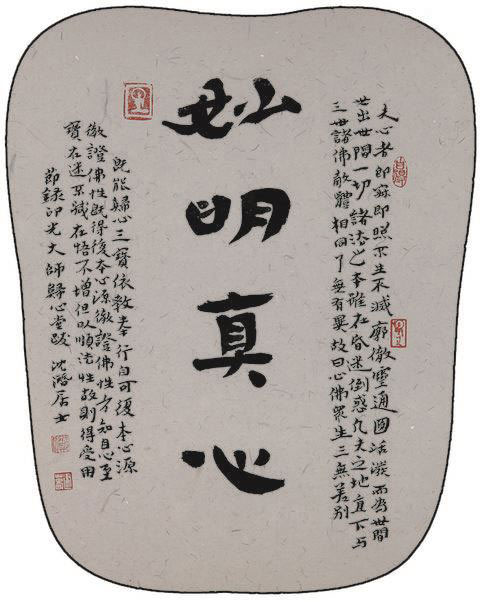 夫心者即寂即照不生不滅廓徹靈通圓活潑而為世間
世出世間一切諸法之本雖在昏迷倒惑凡夫之地直下与
三世諸佛敵體相同了無有異故曰心佛眾生三無差別
妙明真心
既能歸心三寶依教奉行自可復本心源
徹證佛性既得復本心源徹證佛性方知自心至
寶在迷不減在悟不增但以順法性故則得受用
節錄印光大師歸心堂跋 沈居士